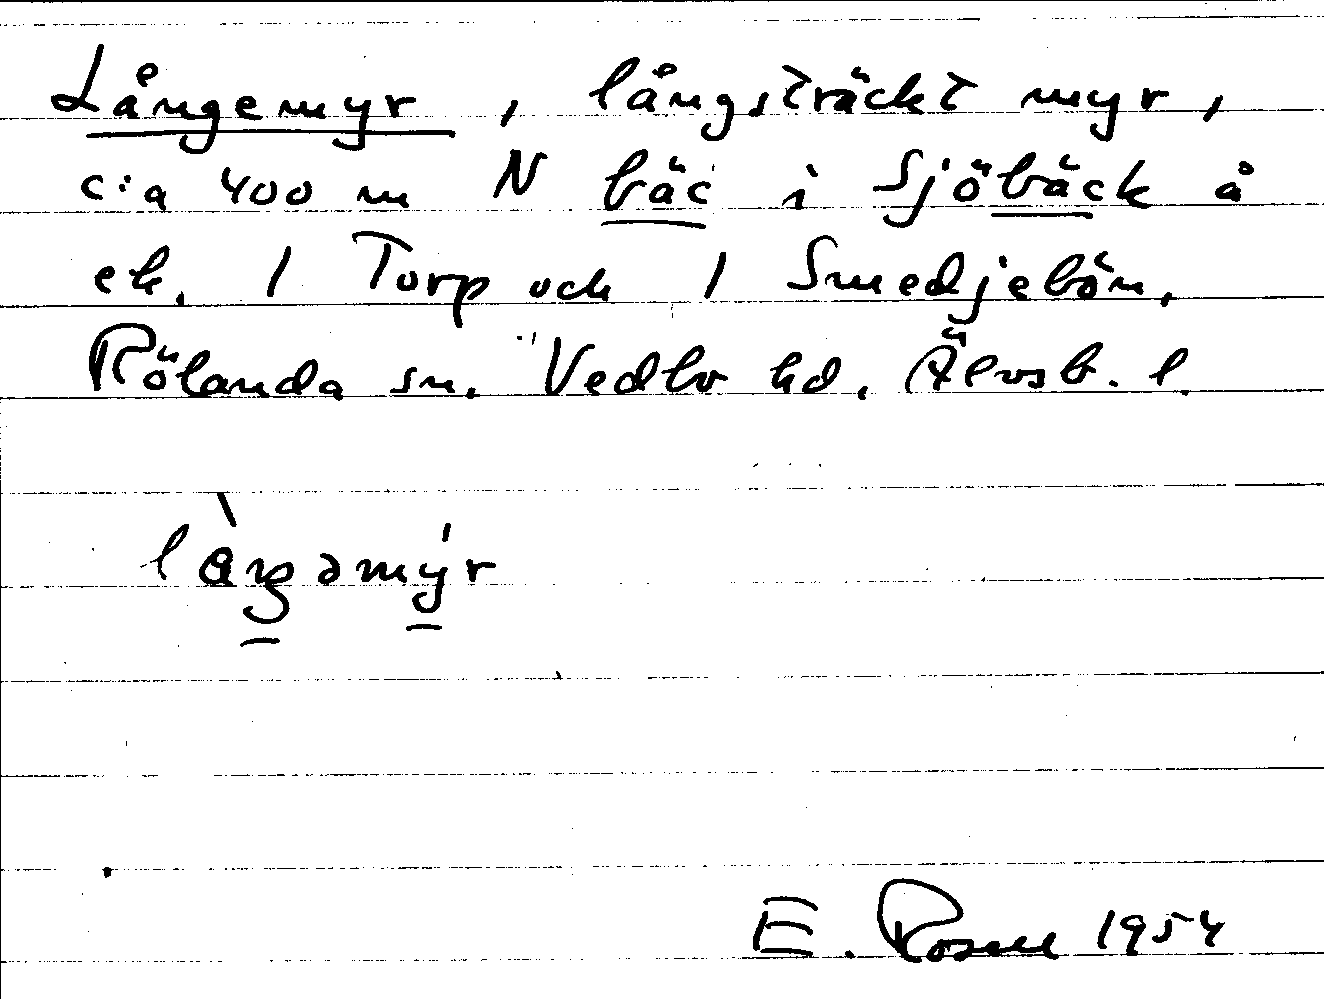 Långemyr, långsträckt myr,
c:a 400 m N bäc i Sjöbäck å
ek. 1 Torp och 1 Smedjebön,
Rölanda sn. Vedbo hd. Älvsb. l.
làŋəmýr
E. Rosell 1954